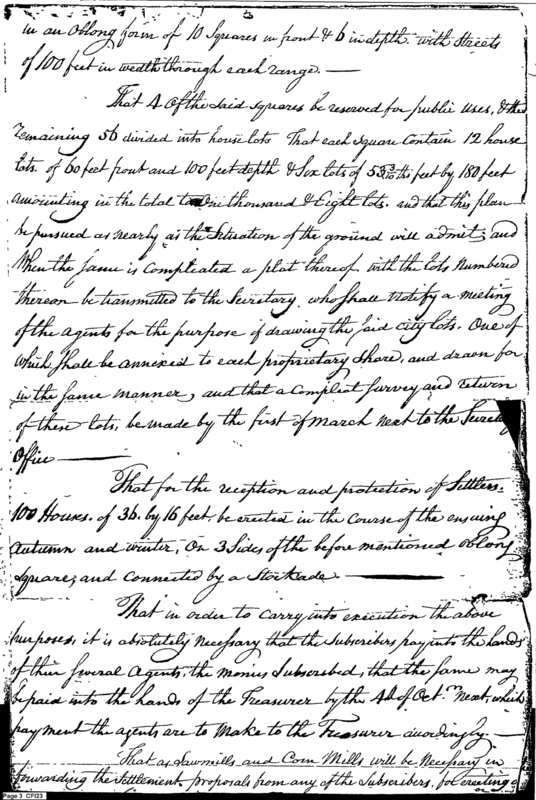 in an Oblong form of 10 Squares in front & 6 in depth with Streets
of 100 feet in wedth through each range. —
That 4 Of the said squares be reserved for public uses, & the
remaining 56 divided into house lots That each square Contain 12 house
lots. of 60 feet front and 100 feet depth & Six lots of 53 3/10ths feet by 180 feet
amointing in the total to One thousand & Eight lots. and that this plan
be pursued as nearly as the Situation of the ground will admit, and
When the Same is Compleated a plat thereof with the lots Numbered
thereon be transmitted to the Secretary who Shall Notify a meeting
of the Agents for the purpose of drawing the said City lots. One of
which Shall be annexed to each proprietary Share, and drawn for
in the Same manner, and that a Compleat Survey and return
of these lots, be made by the first of March next to the Secretary
Office —
That for the reception and protection of Settlers.
100 Houses. of 36. by 16 feet, be erected in the Course of the ensuing
Autumn and winter, On 3 Sides of the before mentioned oblong
Square, and connected by a Stockade. —
That in order to carry into execution the above
purposes, it is absolutely necessary that the Subscribers pay into the hands
of their Several Agents, the monies Subscribed, that the Same may
be paid into the hands of the Treasurer by the of Oct.er Next, which
payment the agents are to make to the Treasurer accordingly —
That as Sawmills and Corn Mills will be Necessary in
forwarding the Settlement. proposals from any of the Subscribers, for erecting
Page 3 CFI23